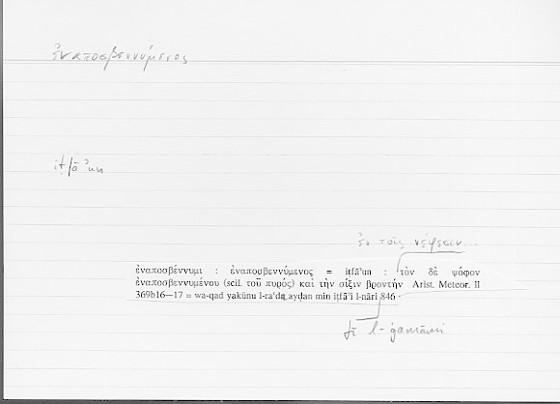 ἐναποσβεννύμενος
iṭfāʾun
ἐν τοῖς νέφεσιν...
ἐναποσβέννυμι : ἐναποσβεννύμενος = iṭfāʾun : τὸν δὲ ψόφον
ἐναποσβεννυμένου (scil. τοῦ πυρός) καὶ τὴν σίξιν βροντήν Arist. Meteor. II
369b16—17 = wa-qad yakūnu l-raʿdu ayḍan min iṭfāʾi l-nāri 846 ·
fī l-ġamāmi